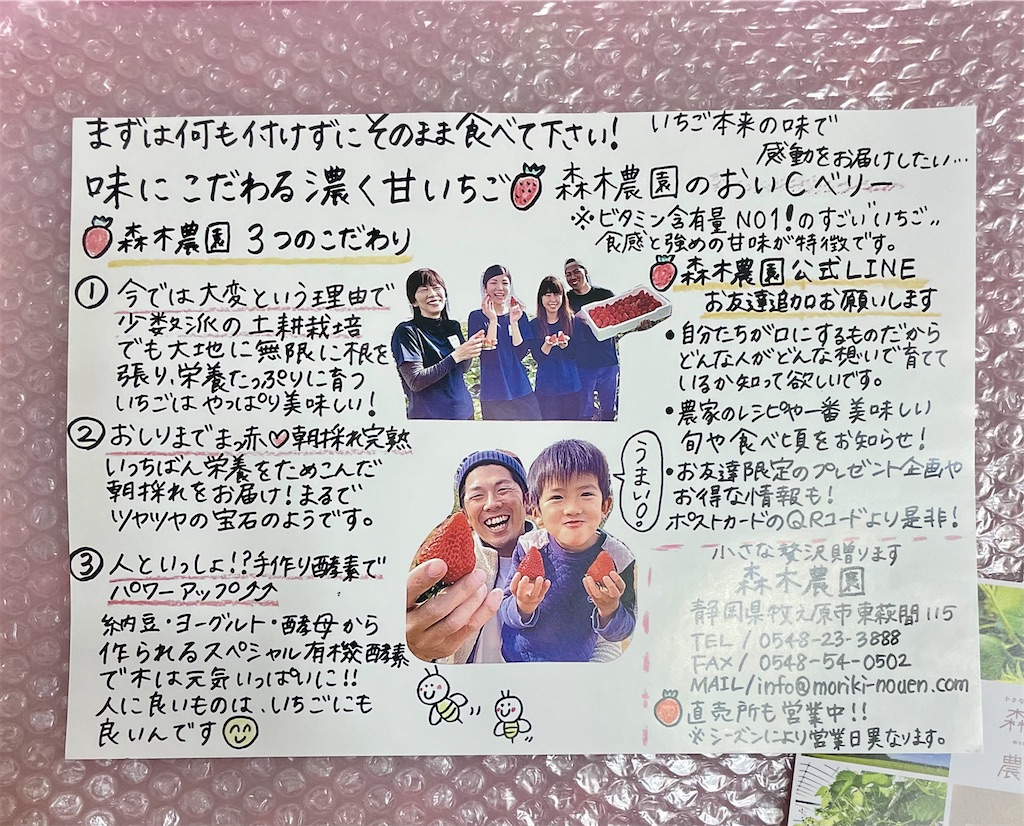 まずは何も付けずにそのまま食べて下さい!
いちご本来の味で
感動をお届けしたい…
味にこだわる濃く甘いちご
森木農園のおいCベリー
※ビタミン含有量NO1!のすごい"いちご"
食感と強めの甘味が特徴です。
森木農園 3つのこだわり
① 今では大変という理由で
少数派の土耕栽培
でも大地に無限に根を
張り、栄養たっぷりに育つ
いちごはやっぱり美味しい!
② おしりまでまっ赤♡朝採れ完熟
いっちばん栄養をためこんだ
朝採れをお届け!まるで
ツヤツヤの宝石のようです。
③ 人といっしょ!?手作り酵素で
パワーアップ⤴⤴
納豆・ヨーグルト・酵母から
作られるスペシャル有機酵素
で木は元気いっぱいに!!
人に良いものは、いちごにも
良いんです
うまい〜。
森木農園公式LINE
お友達追加お願いします
・自分たちが口にするものだから
どんな人がどんな想いで育てて
いるか知って欲しいです。
・農家のレシピや一番美味しい
旬や食べ頃をお知らせ!
・お友達限定のプレゼント企画や
お得な情報も!
ポストカードのQRコードより是非!
小さな贅沢贈ります
森木農園
静岡県牧之原市東萩間115
TEL/0548-23-3888
FAX/0548-54-0502
MAIL/info@moriki-nouen.com
直売所も営業中!!
※シーズンにより営業日異なります。
森
農